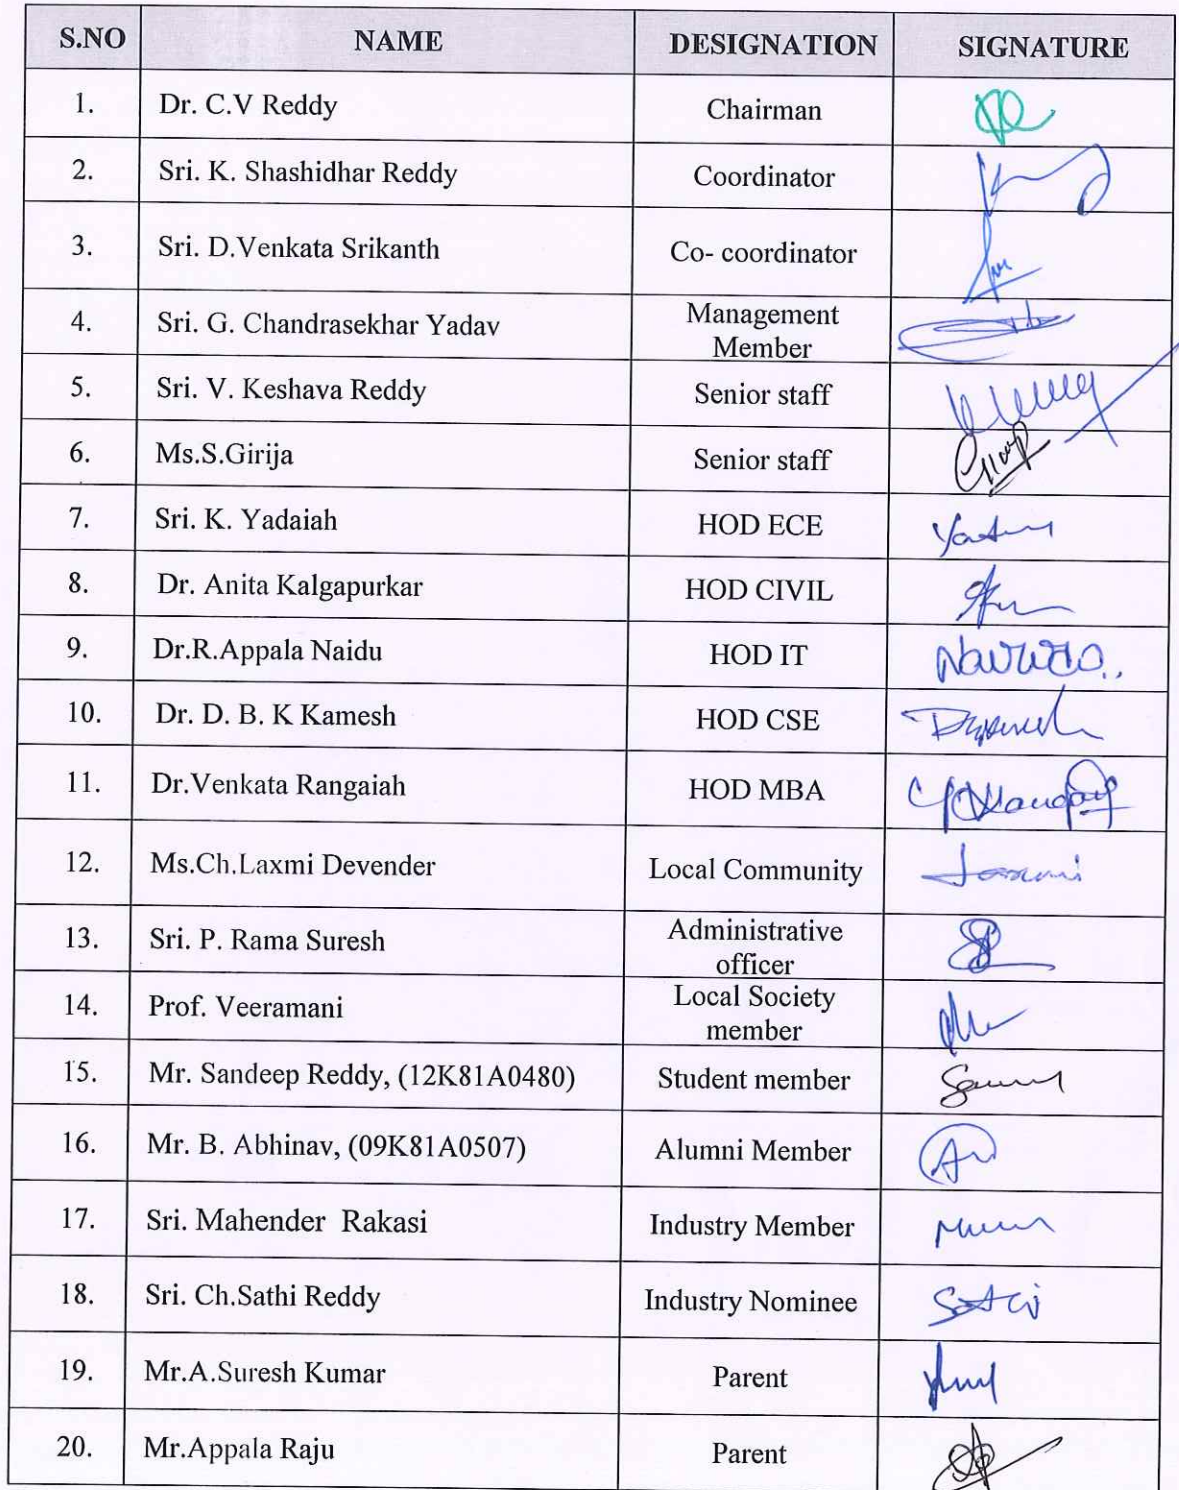 S.NO NAME DESIGNATION SIGNATURE
1. Dr. C.V Reddy Chairman
2. Sri. K. Shashidhar Reddy Coordinator
3. Sri. D.Venkata Srikanth Co- coordinator
4. Sri. G. Chandrasekhar Yadav Management
Member
5. Sri. V. Keshava Reddy Senior staff
6. Ms.S.Girija Senior staff
7. Sri. K. Yadaiah HOD ECE
8. Dr. Anita Kalgapurkar HOD CIVIL
9. Dr.R.Appala Naidu HOD IT
10. Dr. D. B. K Kamesh HOD CSE
11. Dr.Venkata Rangaiah HOD MBA
12. Ms.Ch.Laxmi Devender Local Community
13. Sri. P. Rama Suresh Administrative
officer
14. Prof. Veeramani Local Society
member
15. Mr. Sandeep Reddy, (12K81A0480) Student member
16. Mr. B. Abhinav, (09K81A0507) Alumni Member
17. Sri. Mahender Rakasi Industry Member
18. Sri. Ch.Sathi Reddy Industry Nominee
19. Mr.A.Suresh Kumar Parent
20. Mr.Appala Raju Parent